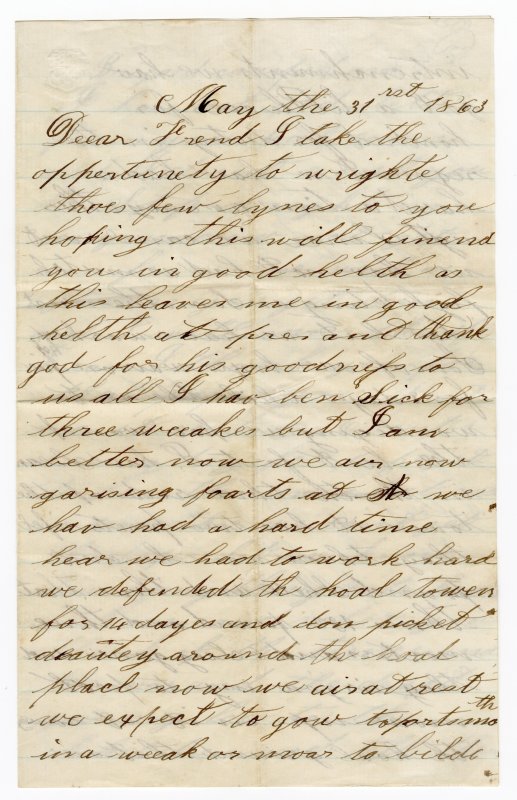 May the 31rst 1863
Deear Frend I take the
oppertunety to wrighte
thoes few lynes to you
hoping this will finend
you in good helth as
this leaves me in good
helth at presant thank
god for his goodness to
us all I hav ben Sick for
three weeakes but I am
better now we air now
garising foarts at we
hav had a hard time
hear we had to work hard
we defended th hoal towen
for 14 dayes and don picket
deautey around th hoal
place now we air at rest
we expect to gow to portsmoth
in a weeak or moar to bilde